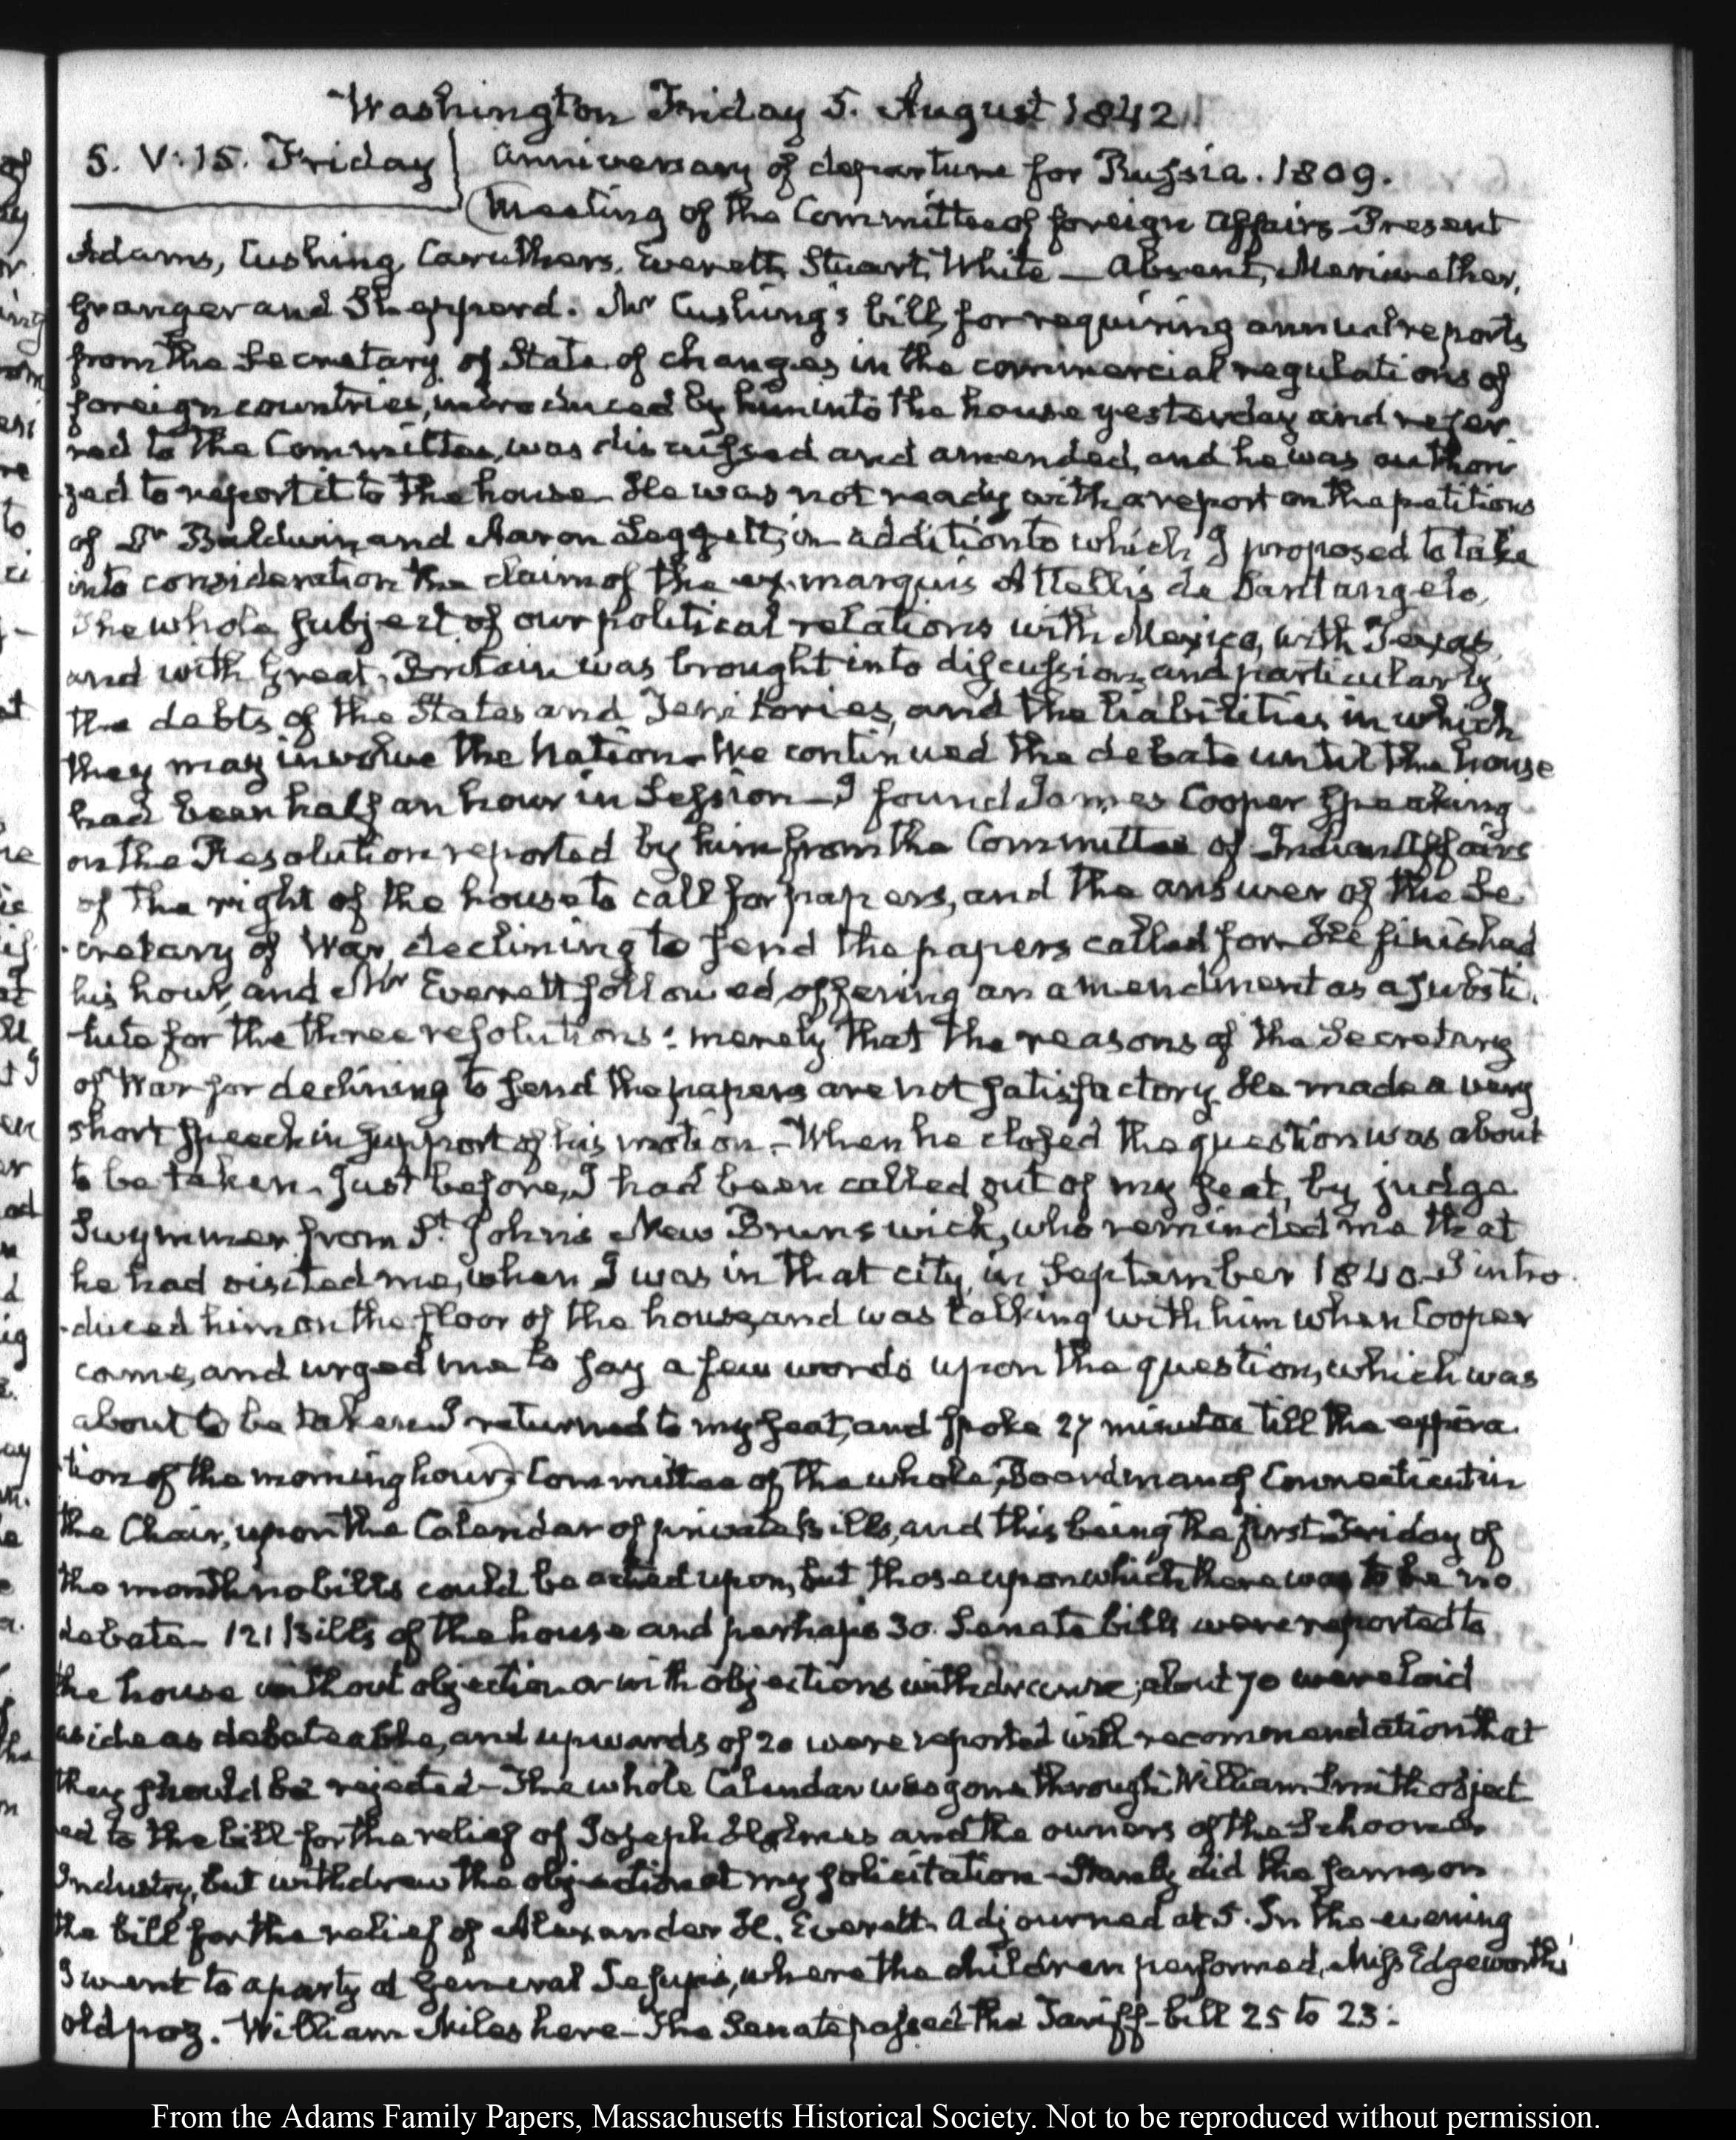 Washington Friday 5. August 1842
5. V:15. Friday Anniversary of departure for Russia. 1809.
Meeting of the Committee of foreign Affairs Present
Adams, Cushing, Caruthers, Everett, Stuart, White — Absent, Meriwether,
Granger and Shepperd. Mr Cushing's bill, for requiring annual reports
from the Secretary of State of changes in the commercial regulations of
foreign countries, introduced by him into the house yesterday and refer
red to the Committee, was discussed and amended, and he was authori
zed to report it to the house. He was not ready with a report on the petitions
of Dr Baldwin, and Aaron Leggett, in addition to which I proposed to take
into consideration the claim of the ex-marquis Attellis de Santangelo.
The whole subject of our political relations with Mexico, with Texas,
and with Great-Britain was brought into discussion, and particularly
the debts of the States and Territories, and the liabilities in which
they may involve the Nation. We continued the debate until the house
had been half an hour in Session — I found James Cooper speaking
on the Resolution reported by him from the Committee of Indian Affairs
of the right of the house to call for papers, and the answer of the Se
cretary of War, declining to send the papers called for. He finished
his hour, and Mr Everett followed, offering an amendment as a substi
tute for the three resolutions: merely that the reasons of the Secretary
of War for declining to send the papers are not satisfactory. He made a very
short speech in support of his motion — When he closed the question was about
to be taken. Just before, I had been called out of my seat, by judge
Swymmer from St. John's New Brunswick, who reminded me that
he had visited me, when I was in that city, in September 1840. I intro
duced him on the floor of the house, and was talking with him when Cooper
came, and urged me to say a few words upon the question, which was
about to be taken. I returned to my seat, and spoke 27 minutes till the expira
tion of the morning hour. Committee of the whole, Boardman of Connecticut in
the Chair, upon the Calendar of private bills, and this being the first Friday of
the month no bills could be acted upon, but those upon which there was to be no
debate — 121 Bills of the house and perhaps 30. Senate bills were reported to
the house without objection or with objections withdrawn; about 70 were laid
aside as debateable, and upwards of 20 were reported with recommendation that
they should be rejected — The whole Calendar was gone through. William Smith object
ed to the bill for the relief of Joseph Holmes and the owners of the Schooner
Industry, but withdrew the objection at my solicitation — Stanly did the same on
the bill for the relief of Alexander H. Everett. Adjourned at 5. In the evening
I went to a party at General Jesup's, where the children performed, Miss Edgeworth's
old poz. William Miles here — The Senate passed the Tariff-bill 25 to 23.
From the Adams Family Papers, Massachusetts Historical Society. Not to be reproduced without permission.